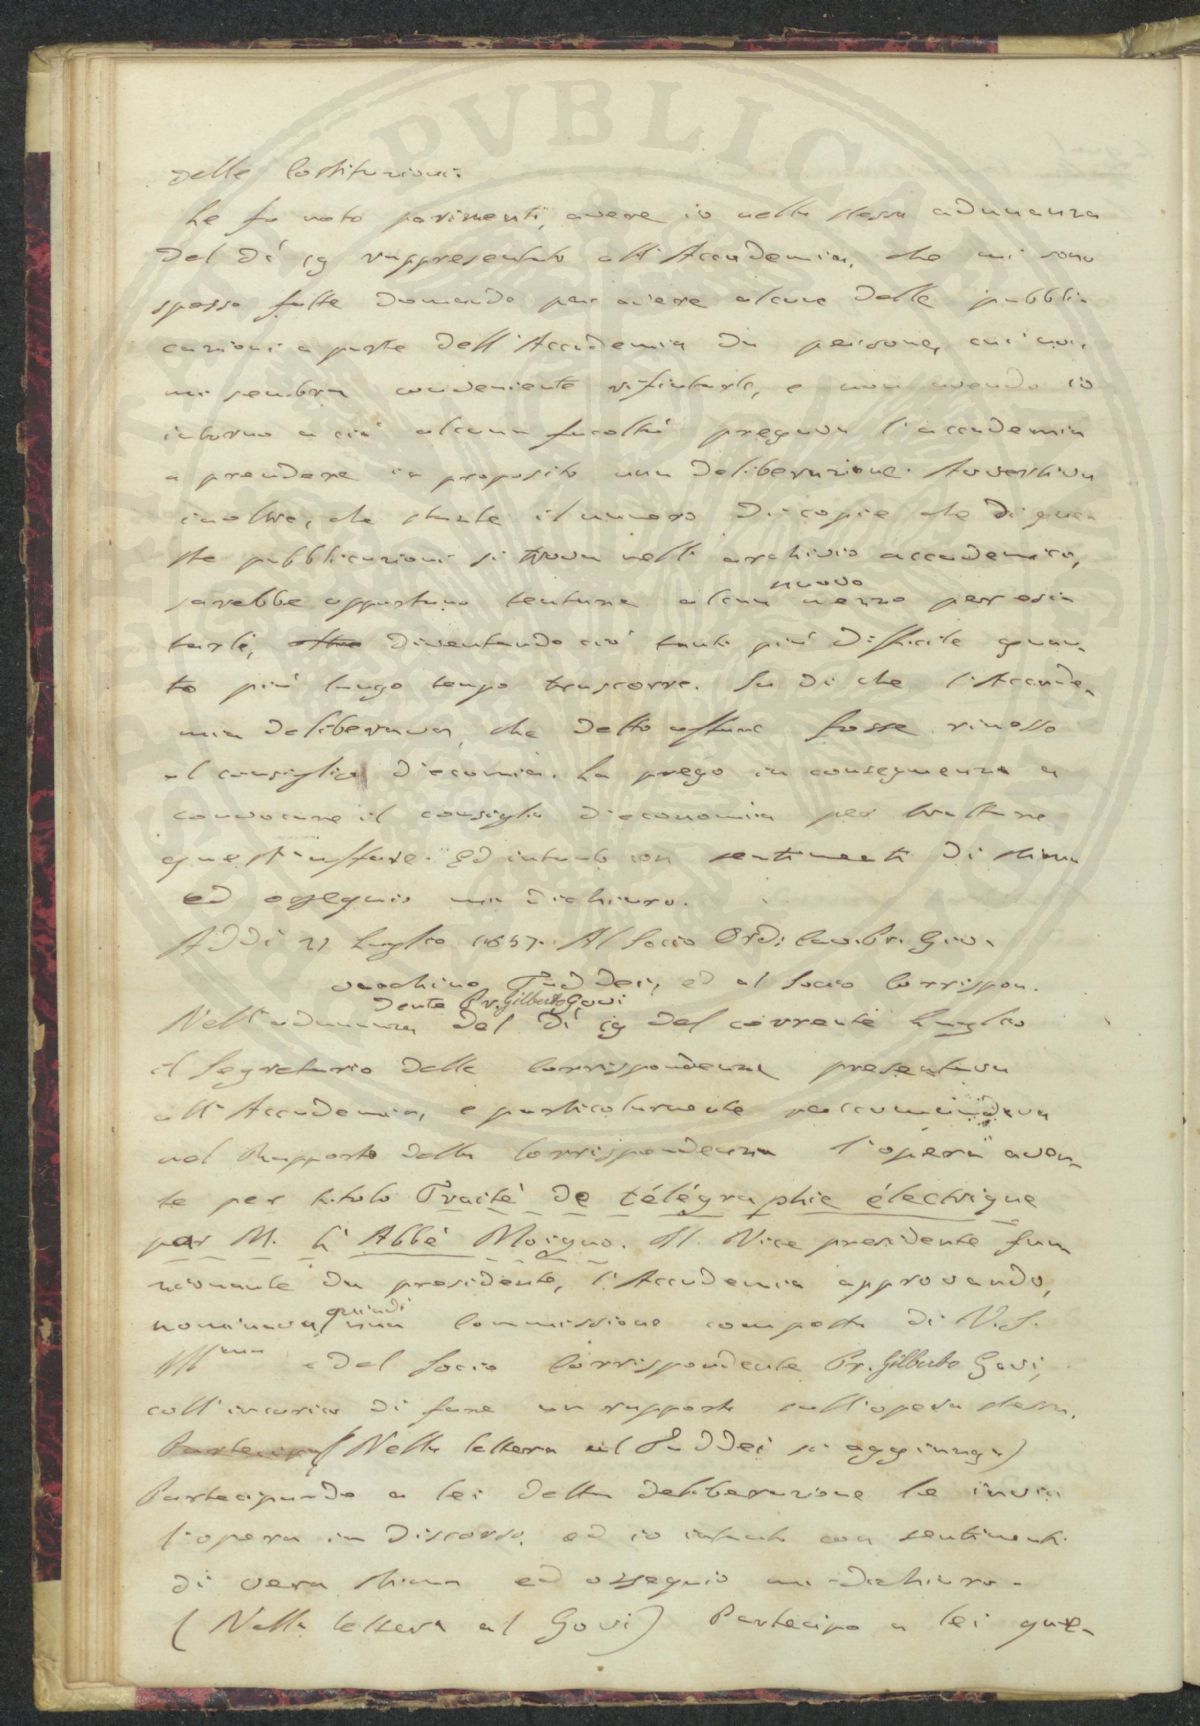 delle Costituzioni.
Le fo noto parimenti, avere io nella stessa adunanza
del dì 19 rappresentato all'Accademia, che mi sono
spesso fatte domande per avere alcune delle pubbli-
cazioni a parte dell'Accademia da persone, cui non
mi sembra conveniente rifiutarle, e non avendo io
intorno a ciò alcuna facoltà pregava l'accademia
a prendere in proposito una deliberazione. Avvertiva
inoltre, che stante il numero di copie che di que-
ste pubblicazioni si trova nell'archivio accademico,
sarebbe opportuno tentare alcun nuovo mezzo per esi
tarle, diventando ciò tanto più difficile quan-
to più lungo tempo trascorre. Su di che l'Accade-
mia deliberava, che detto affare fosse rimesso
al consiglio d'ecomia. La prego in conseguenza a
convocare il consiglio d'economia per trattare
quest'affare. Ed intanto con sentimenti di stima
ed ossequio mi dichiaro.
Addì 21 Luglio 1857. Al Socio Ord: Cav. Pr. Giov.
vacchino Taddei, ed al Socio Corrispon.
dente Pr. Gilberto Govi
Nell'adunanza del dì 19 del corrente Luglio
il Segretario delle Corrispondenze presentava
all'Accademia, e particolarmente raccomandava
nel Rapporto della Corrispondenza l'opera aven-
te per titolo Traité de télégraphie électrique
par M. L'Abbé Moigno. Il Vice presidente fun
zionante da presidente, l'Accademia approvando,
nominava quindi una Commissione composta di V.S.
Ill.ma e del Socio Corrispondente Pr. Gilberto Govi,
coll'incarico di fare un rapporto sull'opera stessa.
Partecipa (Nella lettera al Taddei si aggiunga)
Partecipando a lei detta deliberazione le invio
l'opera in discorso, ed io intanto con sentimenti
di vera stima ed ossequio mi dichiaro.
(Nella lettera al Govi) Partecipo a lei que-